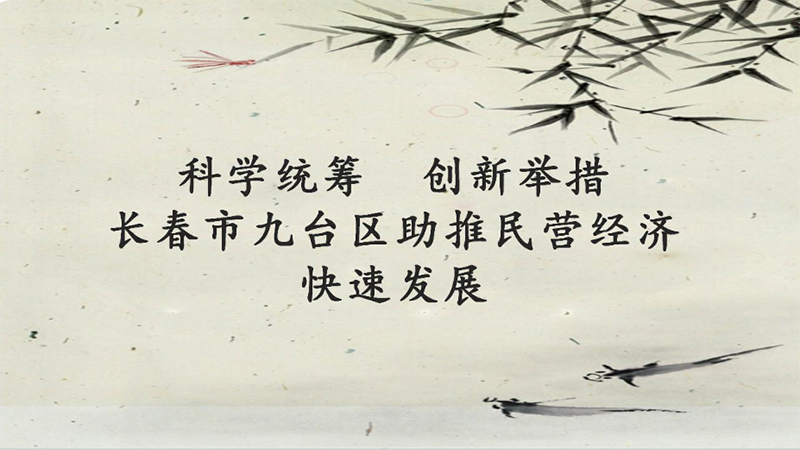 科学统筹　创新举措
长春市九台区助推民营经济
快速发展